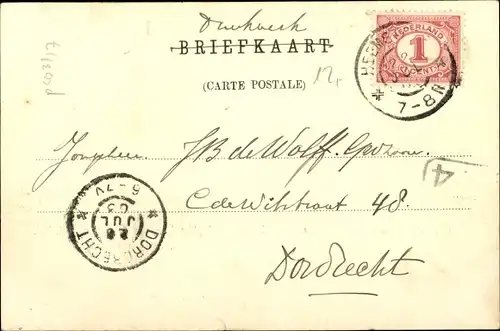 Drukwerk
BRIEFKAART
(CARTE POSTALE)
12,-
NEDERLAND
1
CENT
7-8N
Jongheer
JB de Wolff
C de Witstraat 48.
Dordrecht
4
DORDRECHT
6-7V
28
JUL
03